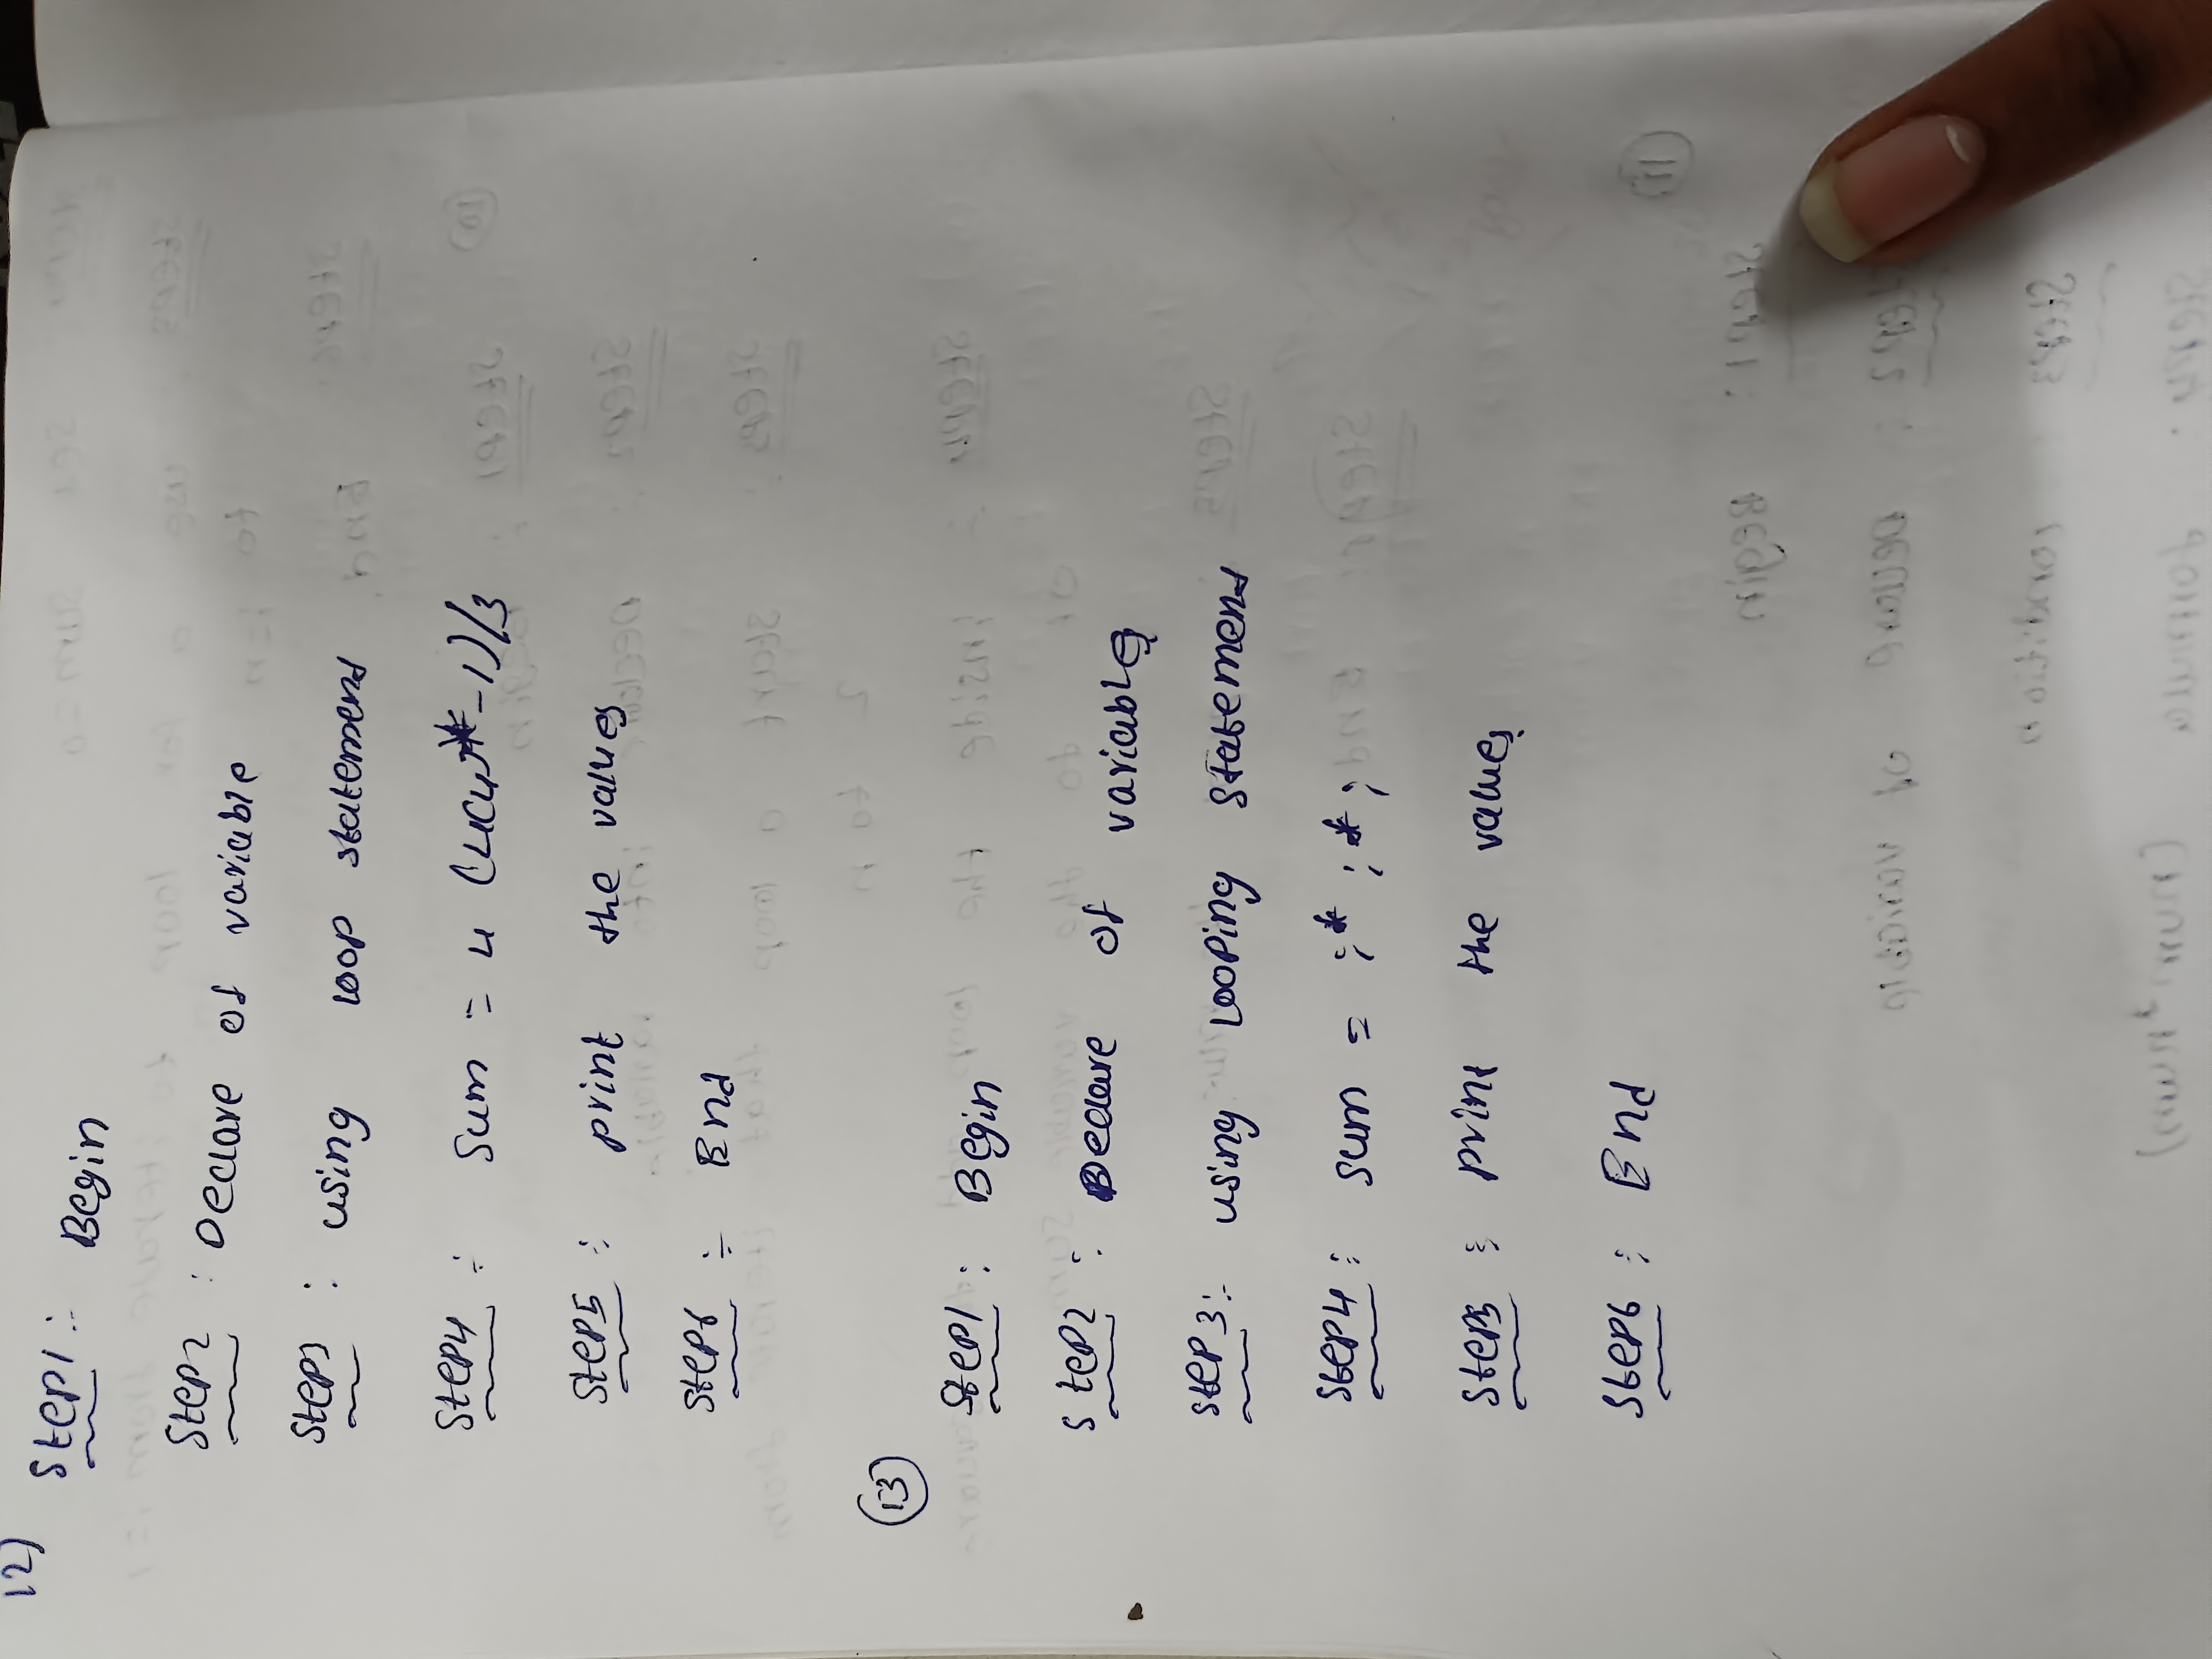 12)
Step1 : Begin
Step2 : Declare of variable
Step3 : using loop statement
Step4 : Sum = 4 -1)/3
Step5 : print the values
Step6 : End
13
Step1 : Begin
Step2 : Declare of variable
Step3 : using Looping statement
Step4 : sum = i* i* i
Step5 : print the values
Step6 : End